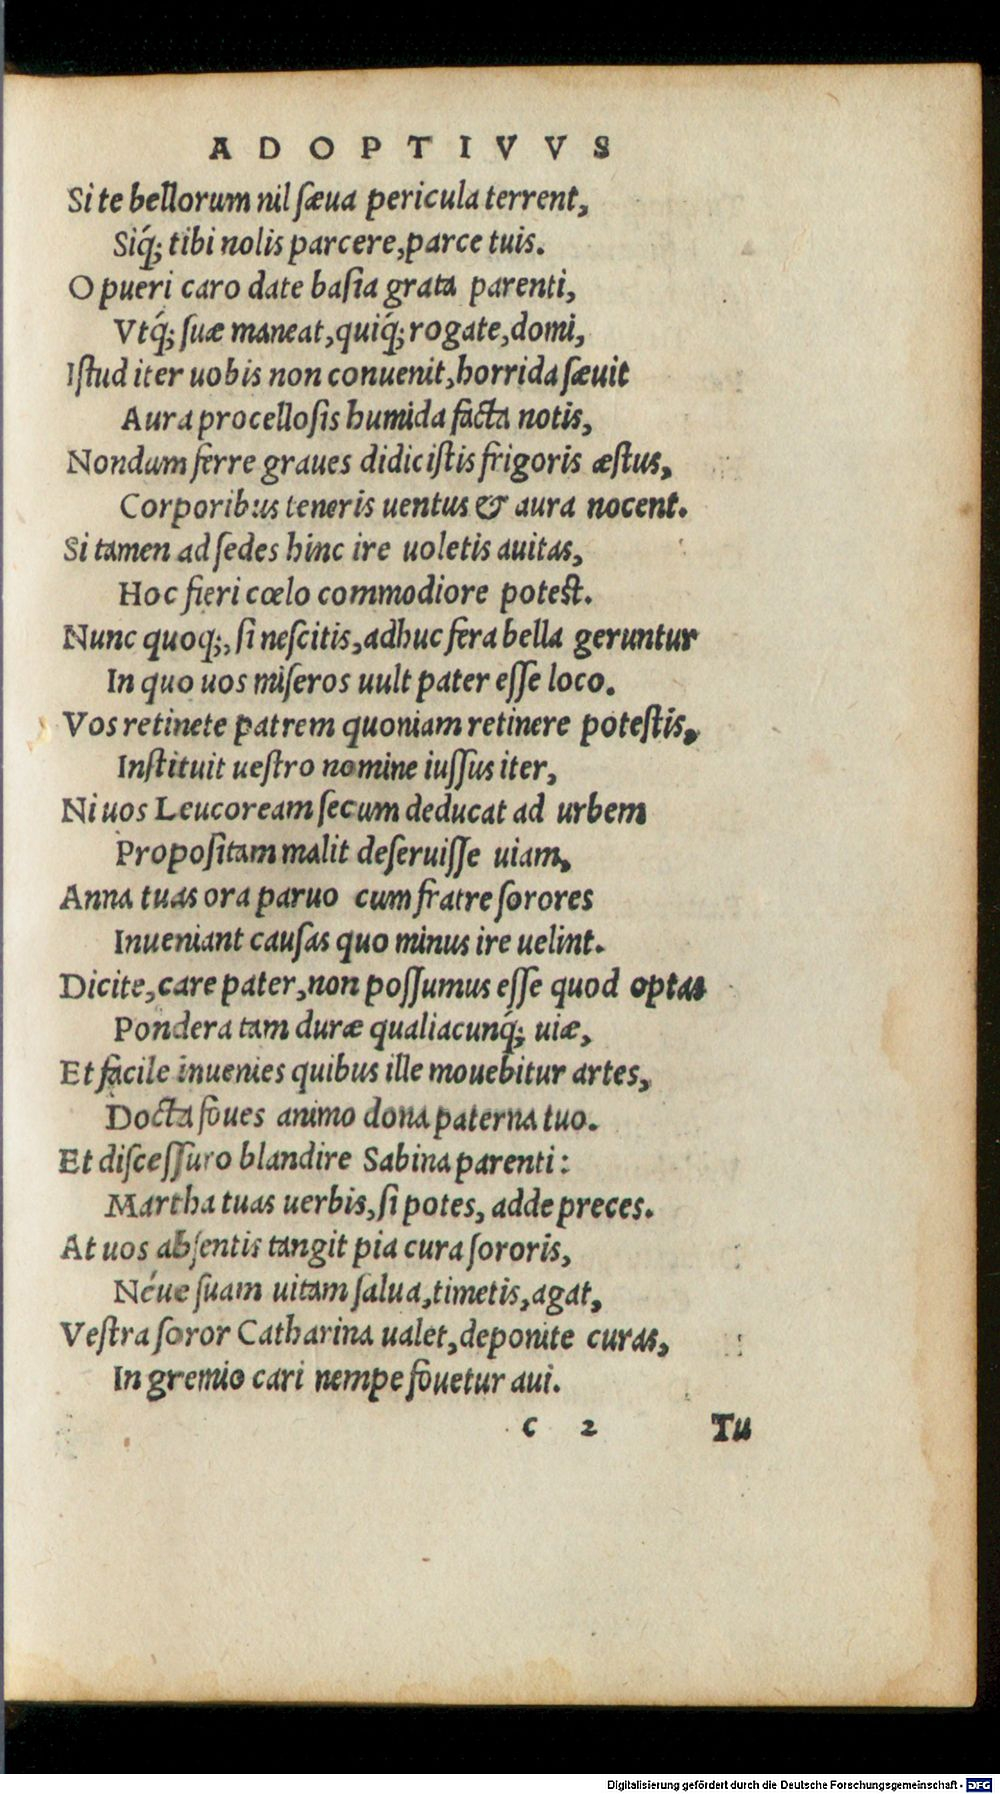 ADOPTIVVS
Si te bellorum nil ſæua pericula terrent,
Siq́; tibi nolis parcere, parce tuis.
O pueri caro date baſia grata parenti,
Vtq́; ſuæ maneat, quiq́; rogate, domi,
Iſtud iter uobis non conuenit, horrida ſæuit
Aura procelloſis humida facta notis,
Nondum ferre graues didiciſtis frigoris æſtus,
Corporibus teneris uentus & aura nocent.
Si tamen ad ſedes hinc ire uoletis auitas,
Hoc fieri cœlo commodiore poteſt.
Nunc quoq;, ſi neſcitis, adhuc fera bella geruntur
In quo uos miſeros uult pater eſſe loco.
Vos retinete patrem quoniam retinere poteſtis,
Inſtituit ueſtro nomine iuſſus iter,
Ni uos Leucoream ſecum deducat ad urbem
Propoſitam malit deſeruiſſe uiam,
Anna tuas ora paruo cum fratre ſorores
Inueniant cauſas quo minus ire uelint.
Dicite, care pater, non poſſumus eſſe quod optas
Pondera tam duræ qualiacunq́; uiæ,
Et facile inuenies quibus ille mouebitur artes,
Docta foues animo dona paterna tuo.
Et diſceſſuro blandire Sabina parenti:
Martha tuas uerbis, ſi potes, adde preces.
At uos abſentis tangit pia cura ſororis,
Néue ſuam uitam ſalua, timetis, agat,
Veſtra ſoror Catharina ualet, deponite curas,
In gremio cari nempe fouetur aui.
c 2 Tu
Digitalisierung gefördert durch die Deutsche Forschungsgemeinschaft - DFG